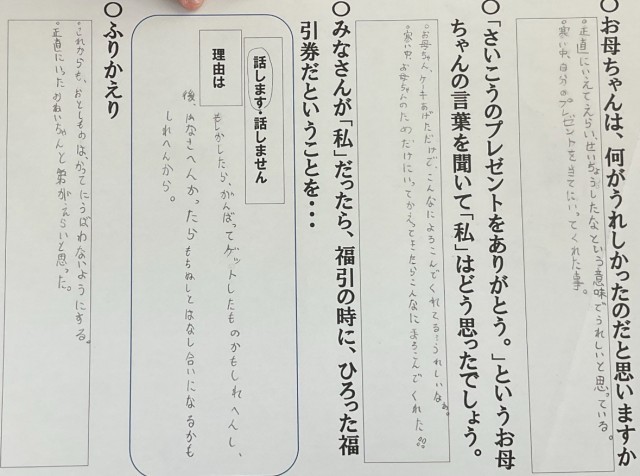 ○お母ちゃんは、何がうれしかったのだと思いますか
・正直にいえてえらい、せいちょうしたなという意味でうれしいと思っている。
・寒い中、自分のプレゼントを当てにいってくれた事。
○「さいこうのプレゼントをありがとう。」というお母
ちゃんの言葉を聞いて「私」はどう思ったでしょう。
・お母ちゃん、ケーキあげただけで、こんなによろこんでくれてる!うれしいなぁ。
・寒い中、お母ちゃんのためだけにいってかえってきたらこんなによろこんでくれた!!
○みなさんが「私」だったら、福引の時に、ひろった福
引券だということを・・・
話します・話しません
理由は
もしかしたら、がんばってゲットしたものかもしれへんし、
後、いなさへんかったらもちぬしとはなし合いになるかも
しれへんから。
○ふりかえり
・これからも、おとしものは、かってにうばわないようにする。
・正直にいったおねいちゃんと弟がえらいと思った。